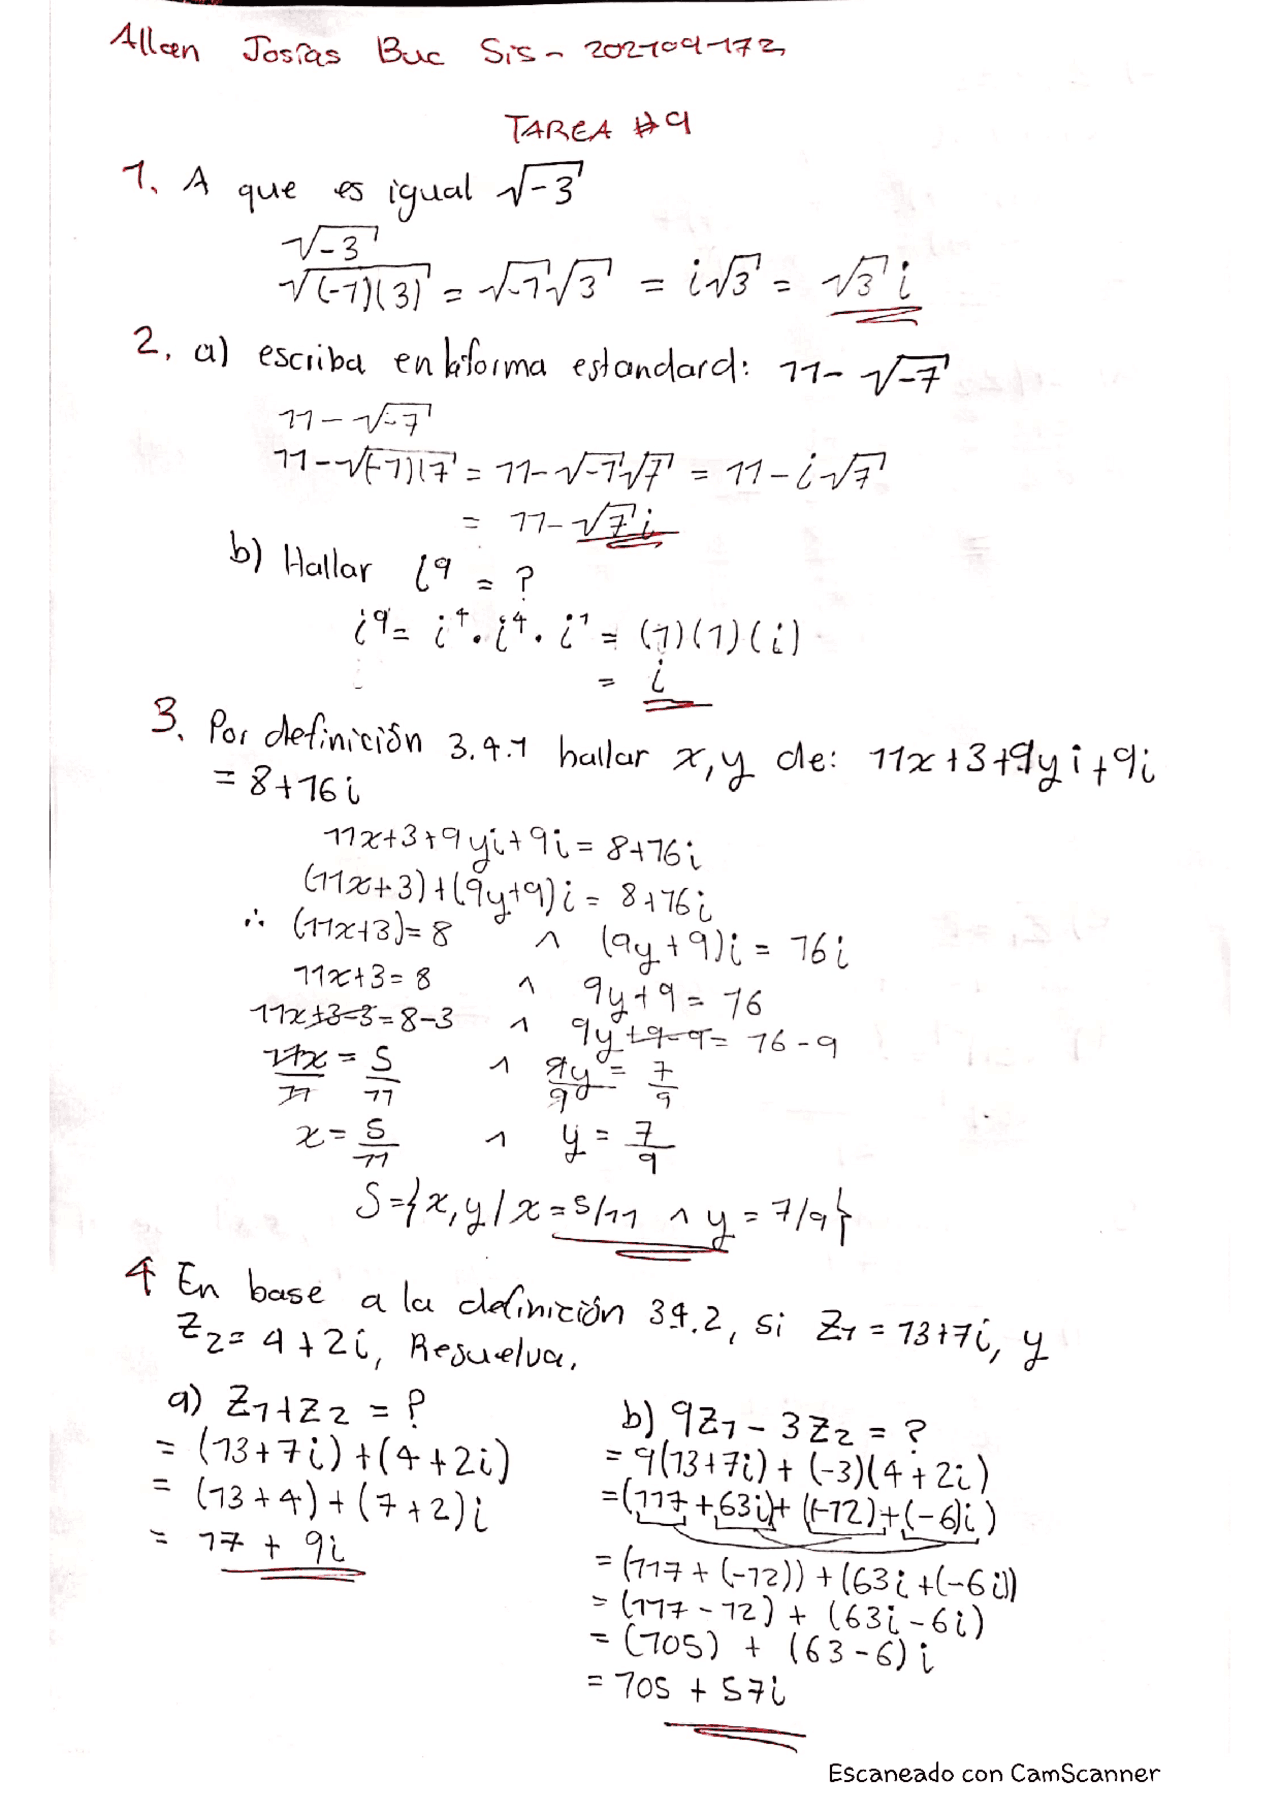 Allan Josías Buc Sis - 202109172
TAREA #9
1. A que es igual √-3
√-3
√(-1)(3) = √-1√3 = i√3 = √3 i
2. a) escriba en la forma estandard: 11 - √-7
11 - √-7
11 - √(-1)(7 = 11 - √-1√7 = 11 - i√7
= 11 - √7 i
b) Hallar i⁹ = ?
i⁹ = i⁴ . i⁴ . i¹ = (1)(1)(i)
= i
3. Por definición 3.4.1 hallar x, y de: 11x + 3 + 9yi + 9i
= 8 + 16i
11x + 3 + 9yi + 9i = 8 + 16i
(11x + 3) + (9y + 9)i = 8 + 16i
∴ (11x + 3) = 8 ∧ (9y + 9)i = 16i
11x + 3 = 8 ∧ 9y + 9 = 16
11x + 3 - 3 = 8 - 3 ∧ 9y + 9 - 9 = 16 - 9
11x/11 = 5/11 ∧ 9y/9 = 7/9
x = 5/11 ∧ y = 7/9
S = {x, y / x = 5/11 ∧ y = 7/9}
4 En base a la definición 34.2, si Z₁ = 13 + 7i, y
Z₂ = 4 + 2i, Resuelva.
a) Z₁ + Z₂ = ?
= (13 + 7i) + (4 + 2i)
= (13 + 4) + (7 + 2)i
= 17 + 9i
b) 9Z₁ - 3Z₂ = ?
= 9(13 + 7i) + (-3)(4 + 2i)
= (117 + 63i) + (-12) + (-6)i)
= (117 + (-12)) + (63i + (-6i))
= (117 - 12) + (63i - 6i)
= (105) + (63 - 6)i
= 105 + 57i
Escaneado con CamScanner